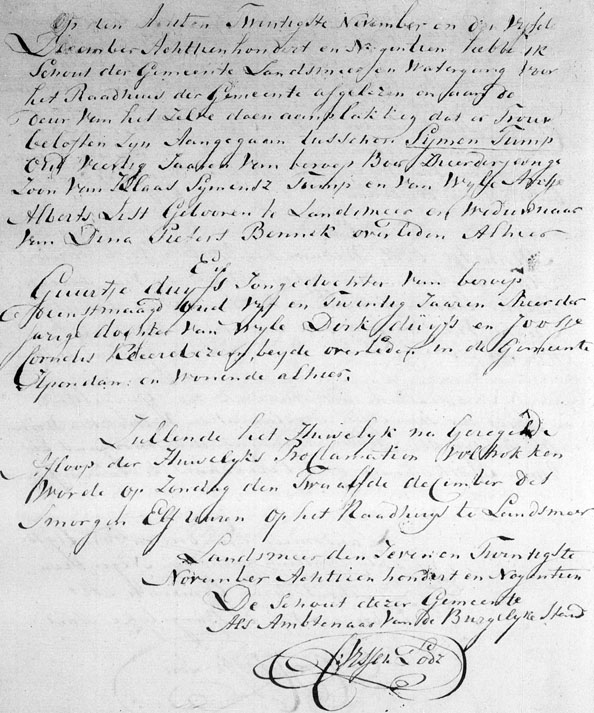 Op den Achten Twintigste November en den Vyfde
December Achttienhondert en Negentien hebbe ik
Schout der Gemeente Landsmeer en Watergang voor
het Raadhuis der Gemeente afgelezen en aan de
Deur van het zelve doen aanplakking dat er Trouw
beloften Zyn Aangegaan tusschen Symen Tump
Oud Veertig Jaaren Van beroep Boer Meerderjearige
Zoon Van Klaas Symensz Tump en Van Wyle Aafje
Alberts List Gebooren te Landsmeer en Weduwnaar
Van Dina Pieters Bennik overleden Alhier
En
Guurtje duyfs Jongedochter Van beroep
Dienstmaagd Oud Vyf en Twintig Jaaren Meerder
jarige dochter Van Wyle Dirk duyfs en Jootje
Cornelis beyde overleden In de Gemeente
Ilpendam en Wonende alhier.
Zullende het Huwelyk na Geregelde
Afloop der Huwelyks Proclamatien Voltrokken
Worde op Zondag den Twaalfde december des
Smorgen Elf uuren op het Raadhuys te Landsmeer
Landsmeer den Zeven en Twintigste
November Achttien hondert en Negentien
De Schout dezer Gemeente
Als Ambtenaar Van de Burgelyke Stand